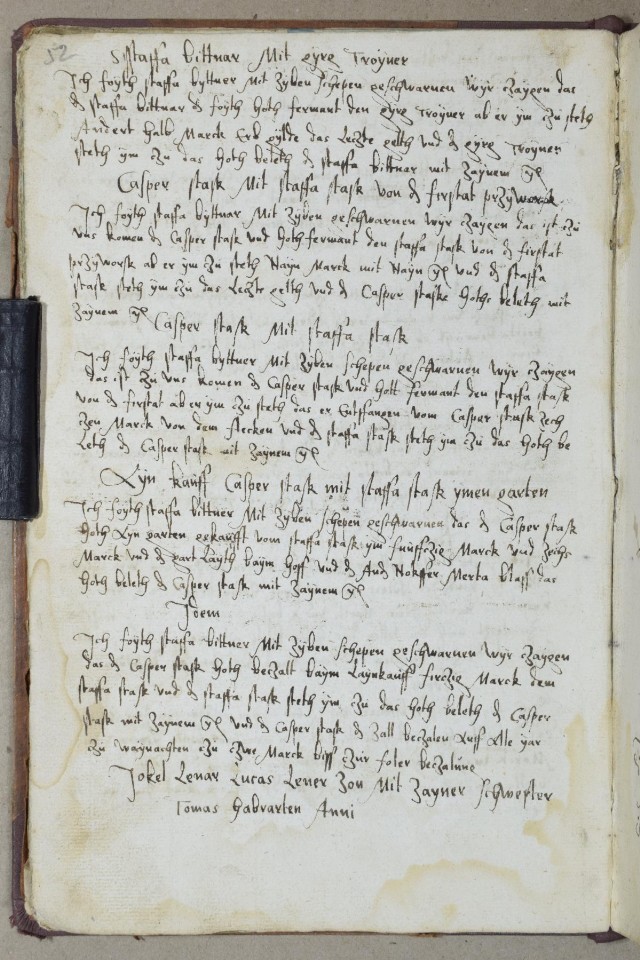 52
Staffa bittnar Mit gyrg Troyner
Ich foyth staffa byttner Mit Zyben schepen geschwarnen wyr Zaygen das
d staffa bittnar d foyth hoth fermant den gyrg Troyner ab er ym Zu steth
Andert halb Marck Erb gylde das Leczte gelth und d gyrg Troyner
steth ym Zu das hoth beleth d staffa bittner mit Zaynem
Casper stask Mit staffa stask von d firstat przyworsk
Ich foyth staffa byttnar Mit Zyben geschwarnen wyr Zaygen das ist Zu
uns komen d Casper stask und hoth fermant den staffa stask von d firstat
przyworsk ab er ym Zu steth Nayn Marck mit Nayn und d staffa
stask steth ym Zu das Leczte gelth und d Casper stask hoths beleth mit
Zaynem
Casper stask Mit staffa stask
Ich foyth staffa byttner Mit Zyben schepen geschwarnen wyr Zaygen
das ist Zu uns komen d Casper stask und hott fermant den staffa stask
von d firstat ab er ym Zu steth das er Entpfangen vom Casper stask zech
Zen Marck von dem flecken und d staffa stask steth ym Zu das hoth be
Leth d Casper stask mit Zaynem
Lyn kauff Casper stask mit staffa stask ymen garten
Ich foyth staffa bittner Mit Zyben schepen geschwarnen das d Casper stask
hoth Eyn garten gekaufft vom staffa stask ym funffczig Marck und Zechs
Marck und d part Layth baym hoff und d And Nokffer Merta blass das
hoth beleth d Casper stask mit Zaynem
Idem
Ich foyth staffa bittner Mit Zyben schepen geschwarnen wyr Zaygen
das d Casper stask hoth beczalt baym Laynkauff firczig Marck dem
staffa stask und d staffa stask steth ym Zu das hoth beleth d Casper
stask mit Zaynem und d Casper stask d Zall beczalen Auff Alle yar
Zu waynachten Zu Zwe Marck biss Zur foler beczalung
Jokel Lenar Lucas Lener Zon Mit Zayner schwester
Tomas habrarten Anni